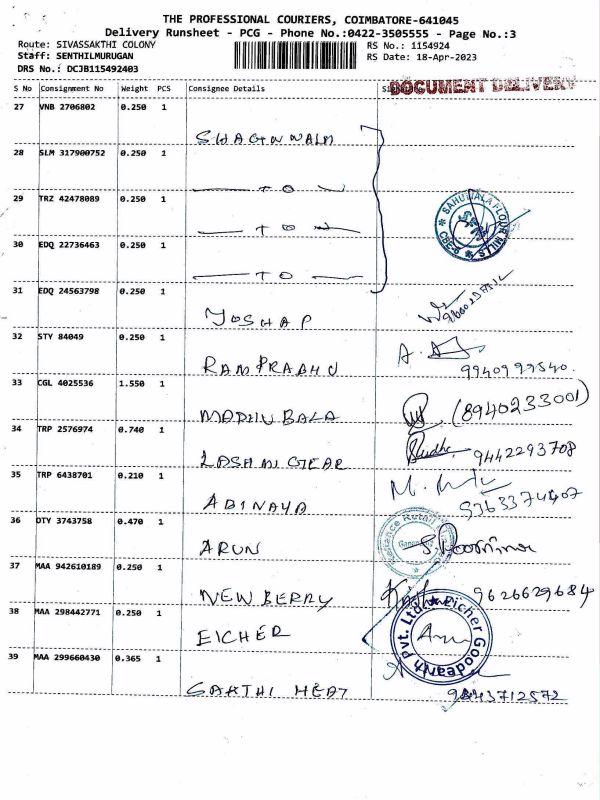 THE PROFESSIONAL COURIERS, COIMBATORE-641045
Delivery Runsheet - PCG - Phone No.:0422-3505555 - Page No.:3
Route: SIVASSAKTHI COLONY
RS No.: 1154924
Staff: SENTHILMURUGAN
RS Date: 18-Apr-2023
DRS No.: DCJB115492403
DOCUMENT DELIVERY
S No Consignment No Weight PCS Consignee Details
27 VNB 2706802 0.250 1
28 SLM 317900752 0.250 1
29 TRZ 42478089 0.250 1
SAHUWALA FLOUR MILLS CBE-6
30 EDQ 22736463 0.250 1
31 EDQ 24563798 0.250 1
YOSHAP
32 STY 84049 0.250 1
RAMPRABHU
33 CGL 4025536 1.550 1
MADHU BALA (8940233001)
34 TRP 2576974 0.740 1
LASHMI GEAR Sudha 9442293708
35 TRP 6438701 0.210 1
ABINAYA
36 DTY 3743758 0.470 1
ARUN
37 MAA 942610189 0.250 1
NEW BERRY 9626629684
38 MAA 298442771 0.250 1
EICHER
Eicher Goodearth Pvt. Ltd.
39 MAA 299660430 0.365 1
SAKTHI HEAT 9843712572